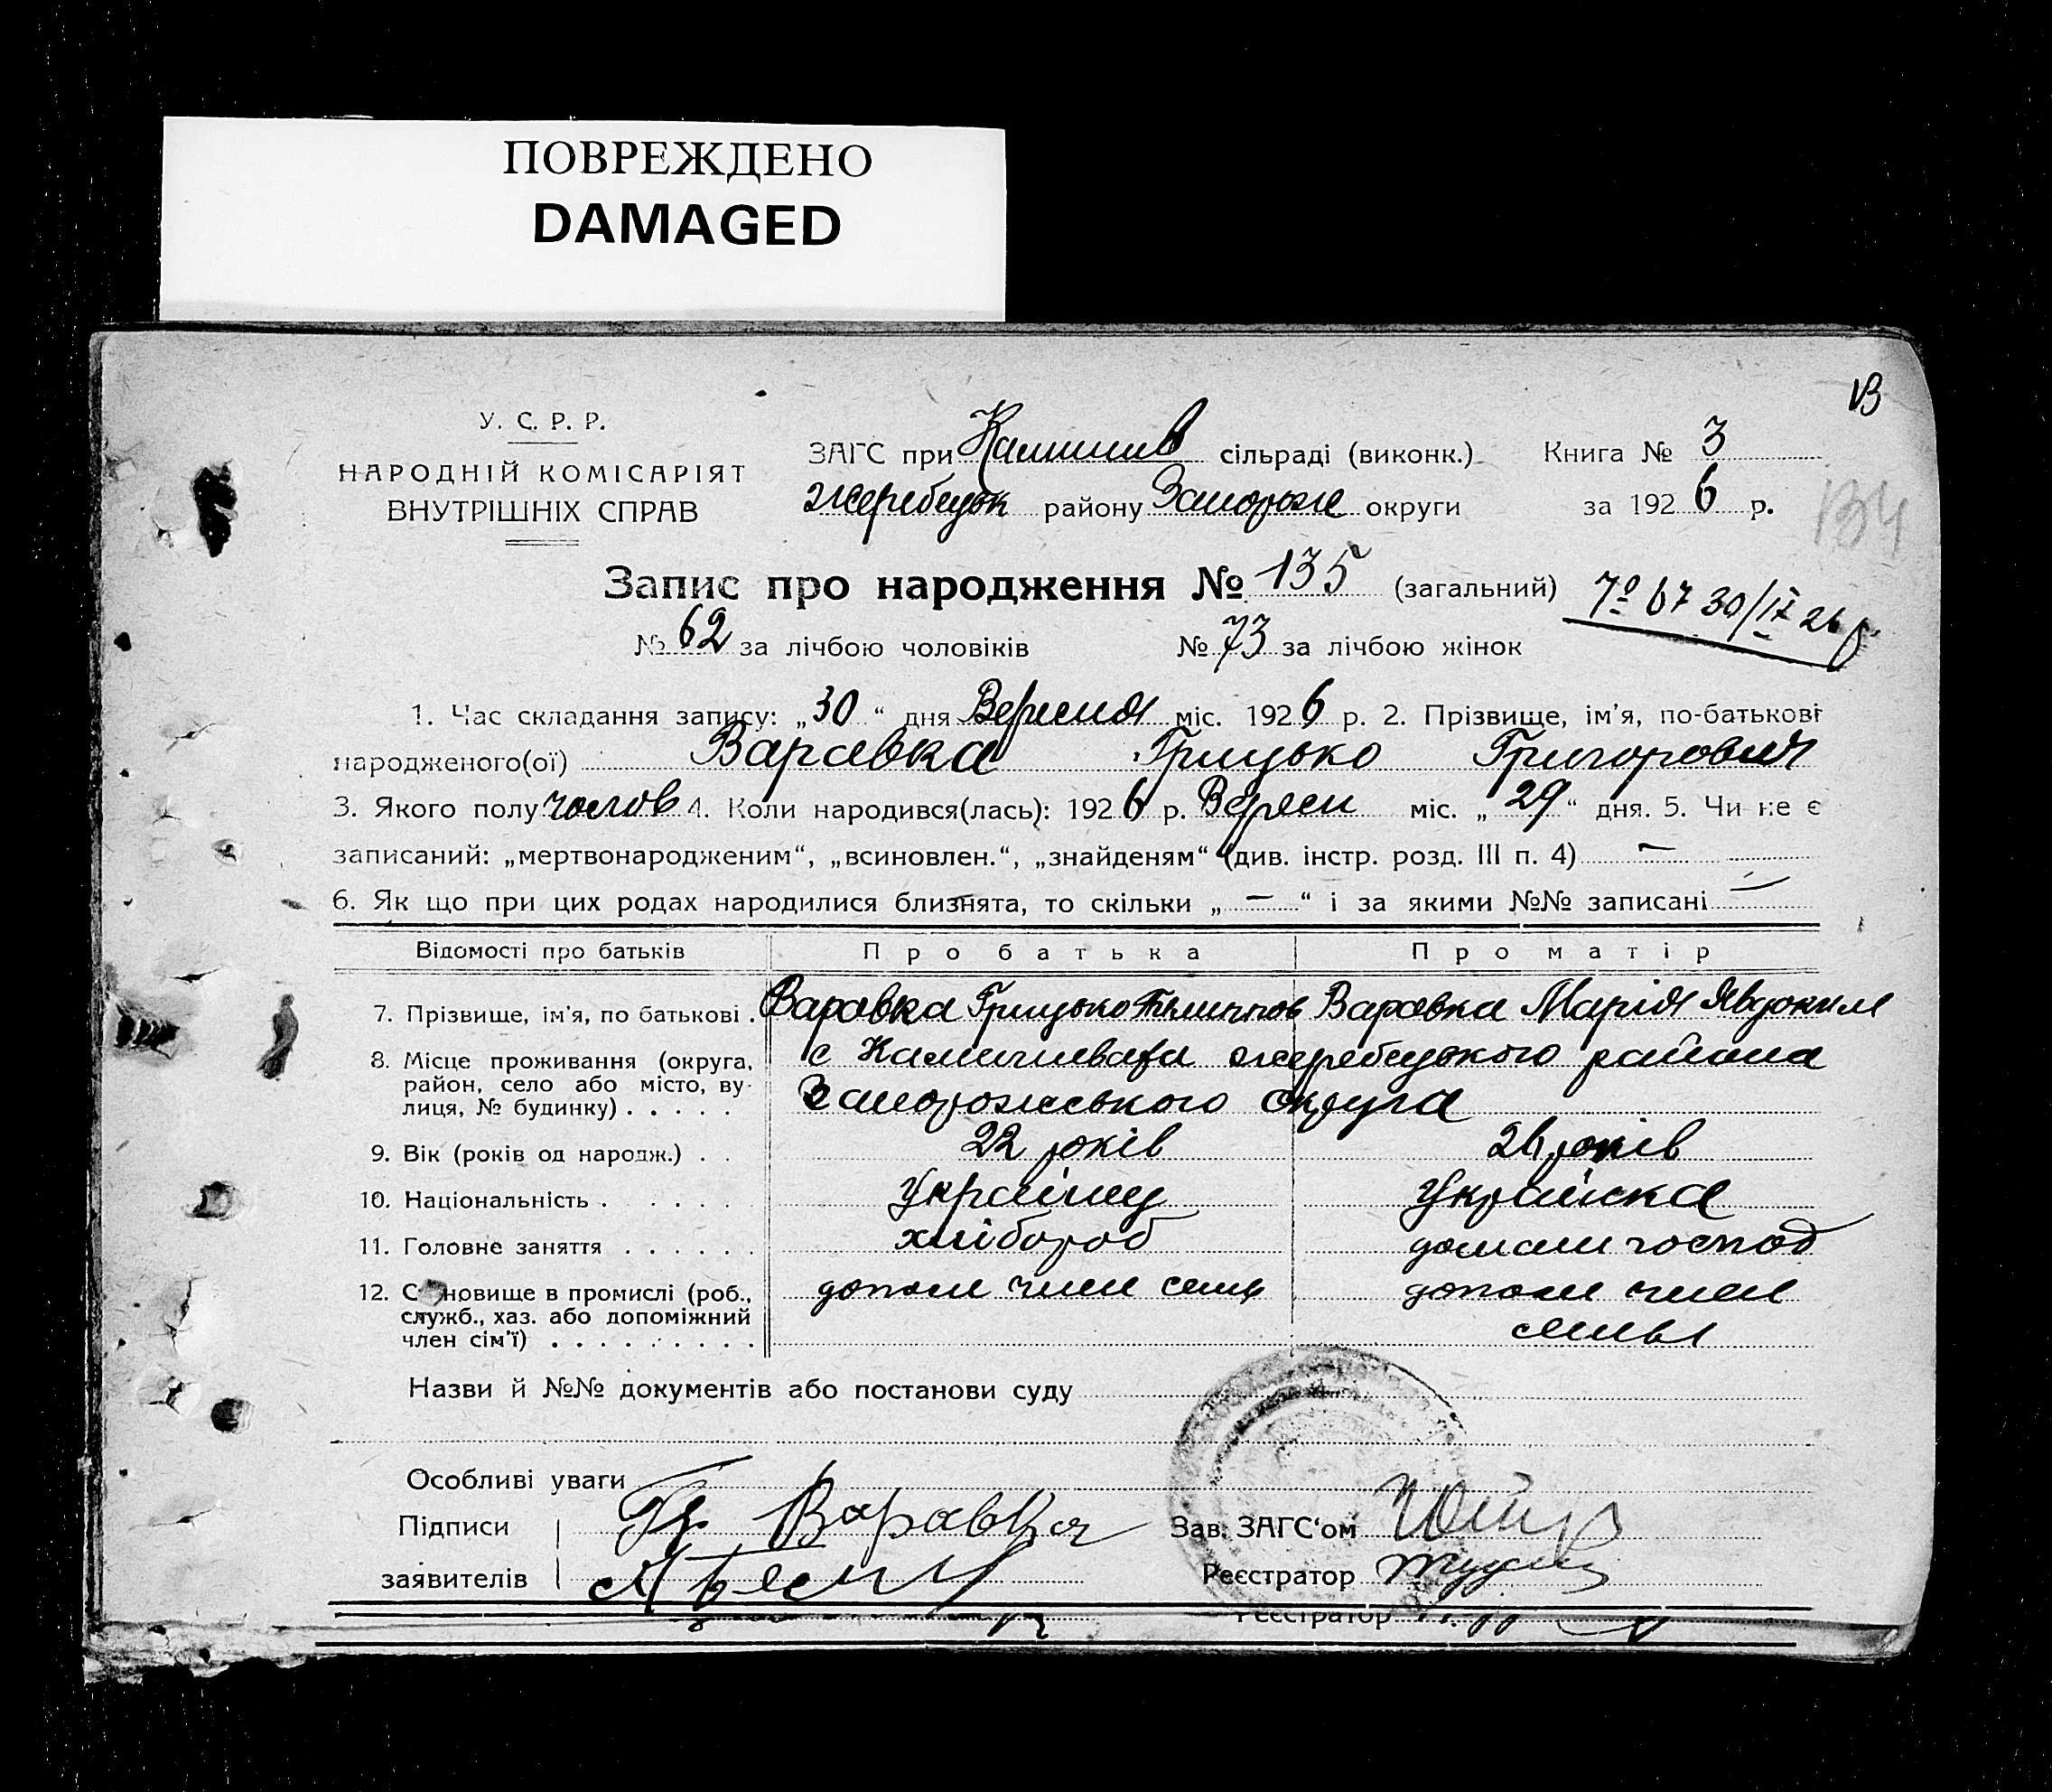 ПОВРЕЖДЕНО
DAMAGED
В
У. С. Р. Р.
НАРОДНІЙ КОМІСАРІЯТ
ВНУТРІШНІХ СПРАВ
ЗАГС при сільраді (виконк.) Книга № 3
Жеребецьк району Запорож округи за 1926 р.
134
Запис про народження № 135 (загальний)
№ 62 за лічбою чоловіків № 73 за лічбою жінок
67 30/IX 26 р
1. Час складання запису: „30“ дня Вересня міс. 1926 р. 2. Прізвище, ім'я, по-батькові
народженого(ої) Варавка Грицько Григорович
3. Якого полу чолов 4. Коли народився(лась): 1926 р. Вересн міс. „29“ дня. 5. Чи не є
записаний: „мертвонародженим“, „всиновлен.“, „знайденям“ (див. інстр. розд. III п. 4) —
6. Як що при цих родах народилися близнята, то скільки „—“ і за якими №№ записані —
Відомості про батьків Про батька Про матір
7. Прізвище, ім'я, по батькові . Варавка Грицько Варавка Марія Явдоким
8. Місце проживання (округа, район, село або місто, вулиця, № будинку) . . . . . с Жеребецького района
Запорожського округа
9. Вік (років од народж.) . . 22 років 26 років
10. Національність . . . . . . Українец Українка
11. Головне заняття . . . . . . хлібороб домашн господ
12. Становище в промислі (роб., служб., хаз. або допоміжний член сім'ї) . . . . . . . . . допом член семц допом член
семьі
Назви й №№ документів або постанови суду
Особливі уваги
Підписи Гр Варавка Зав. ЗАГС'ом
заявителів Реєстратор
Реєстратор